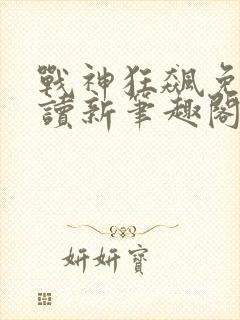 戰神狂飆免
讀新筆趣閣
妍妍寶